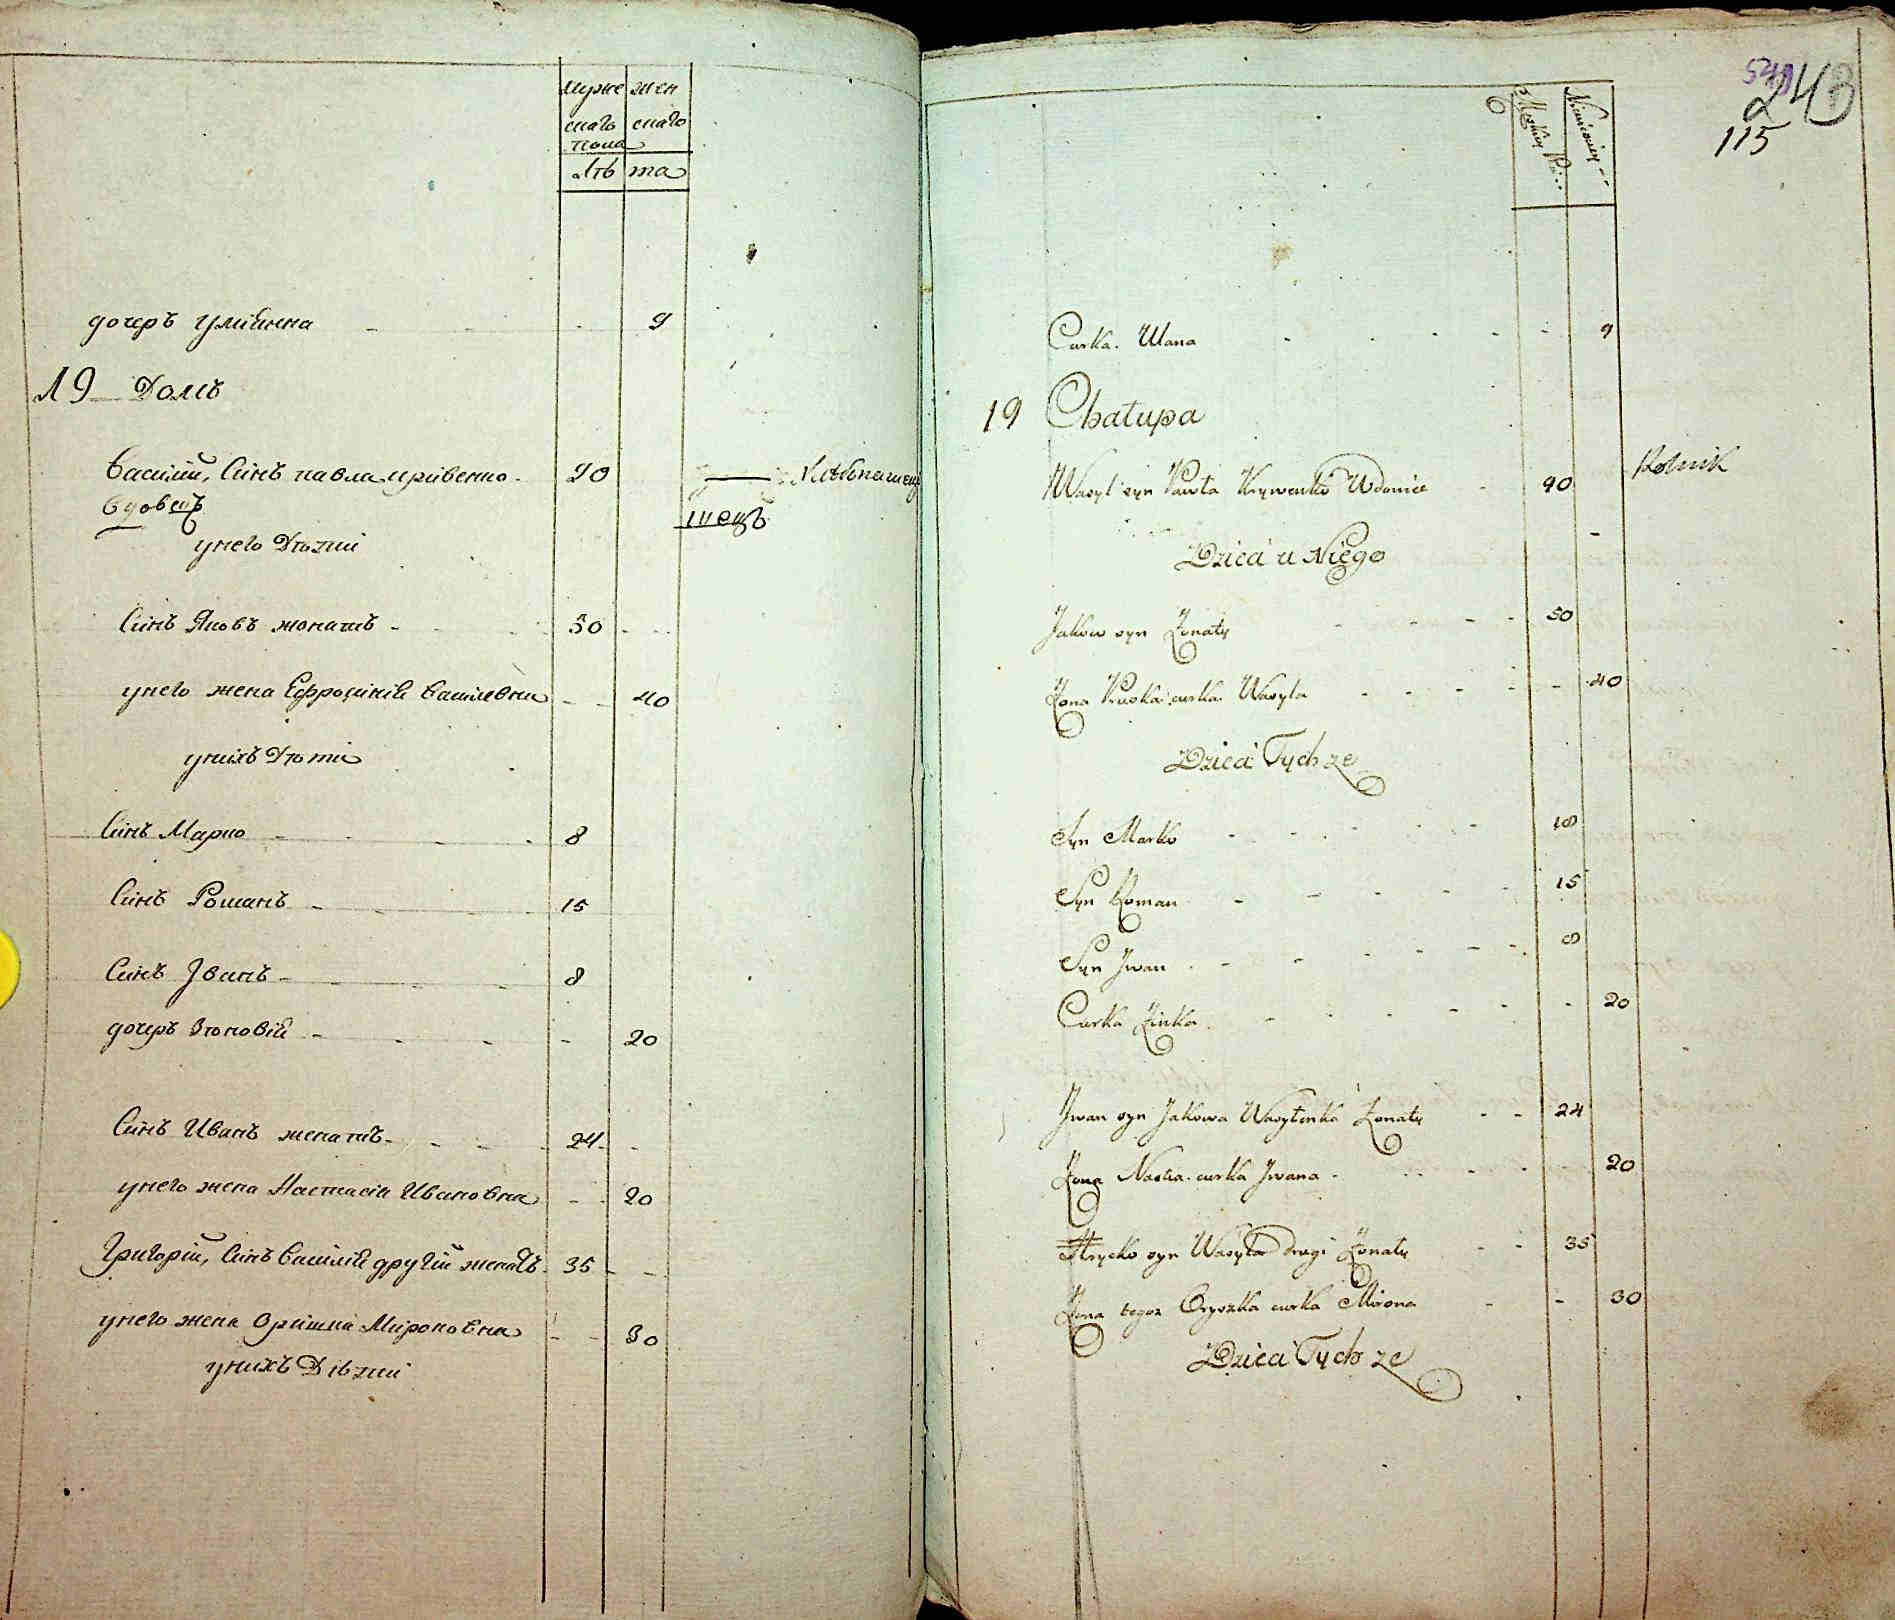 муже жен
скаго скаго
пола
лѣ та
дочеръ Улияна 9
19 Домъ
Василий, Синъ павла кривенко 90
вдовецъ
унего Дѣти
Синъ Яковъ жонатъ 50
унего жена Ефросиния Василевна 40
унихъ Дѣти
Синъ Марко 8
Синъ Романъ 15
Синъ Іванъ 8
дочеръ Зѣновия 20
Синъ Иванъ женатъ 24
унего жена Настасия Ивановна 20
Григорий, Синъ Василия другий женатъ 35
унего жена Оришка Мироновна 30
унихъ Дѣти
243
115
Curka Ulana 9
19 Chałupa
Wasyl syn Pawła Krywenko Wdowiec 90 Rolnik
Dzieci u Niego
Jakow syn Żonaty 50
Żona Pruska curka Wasyla 40
Dzieci Tychże
Syn Marko 18
Syn Roman 15
Syn Jwan 8
Curka Zinka 20
Jwan syn Jakowa Wasylenka Żonaty 24
Żona Nastia curka Jwana 20
Hrycko syn Wasyla drugi Żonaty 35
Żona tegoż Oryszka curka Mirona 30
Dzieci Tychże